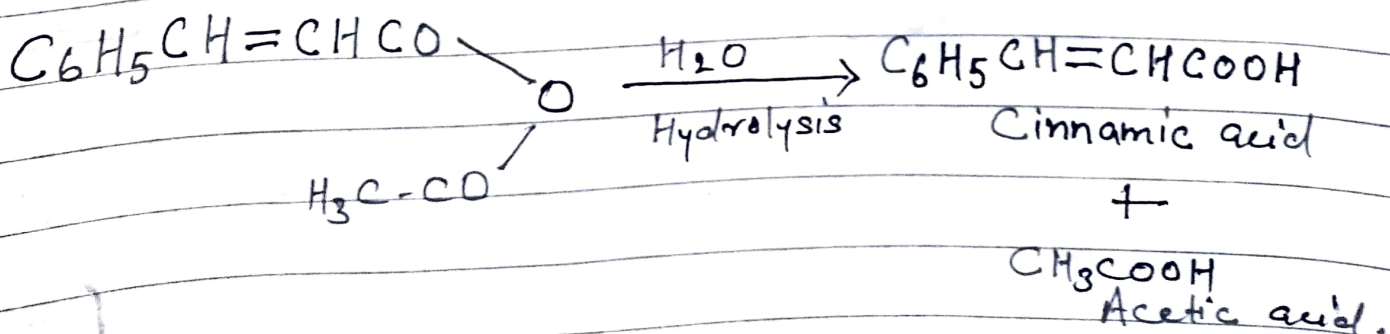 C₆H₅CH=CHCO
O
H₃C-CO
H₂O
Hydrolysis
C₆H₅CH=CHCOOH
Cinnamic acid
+
CH₃COOH
Acetic acid.